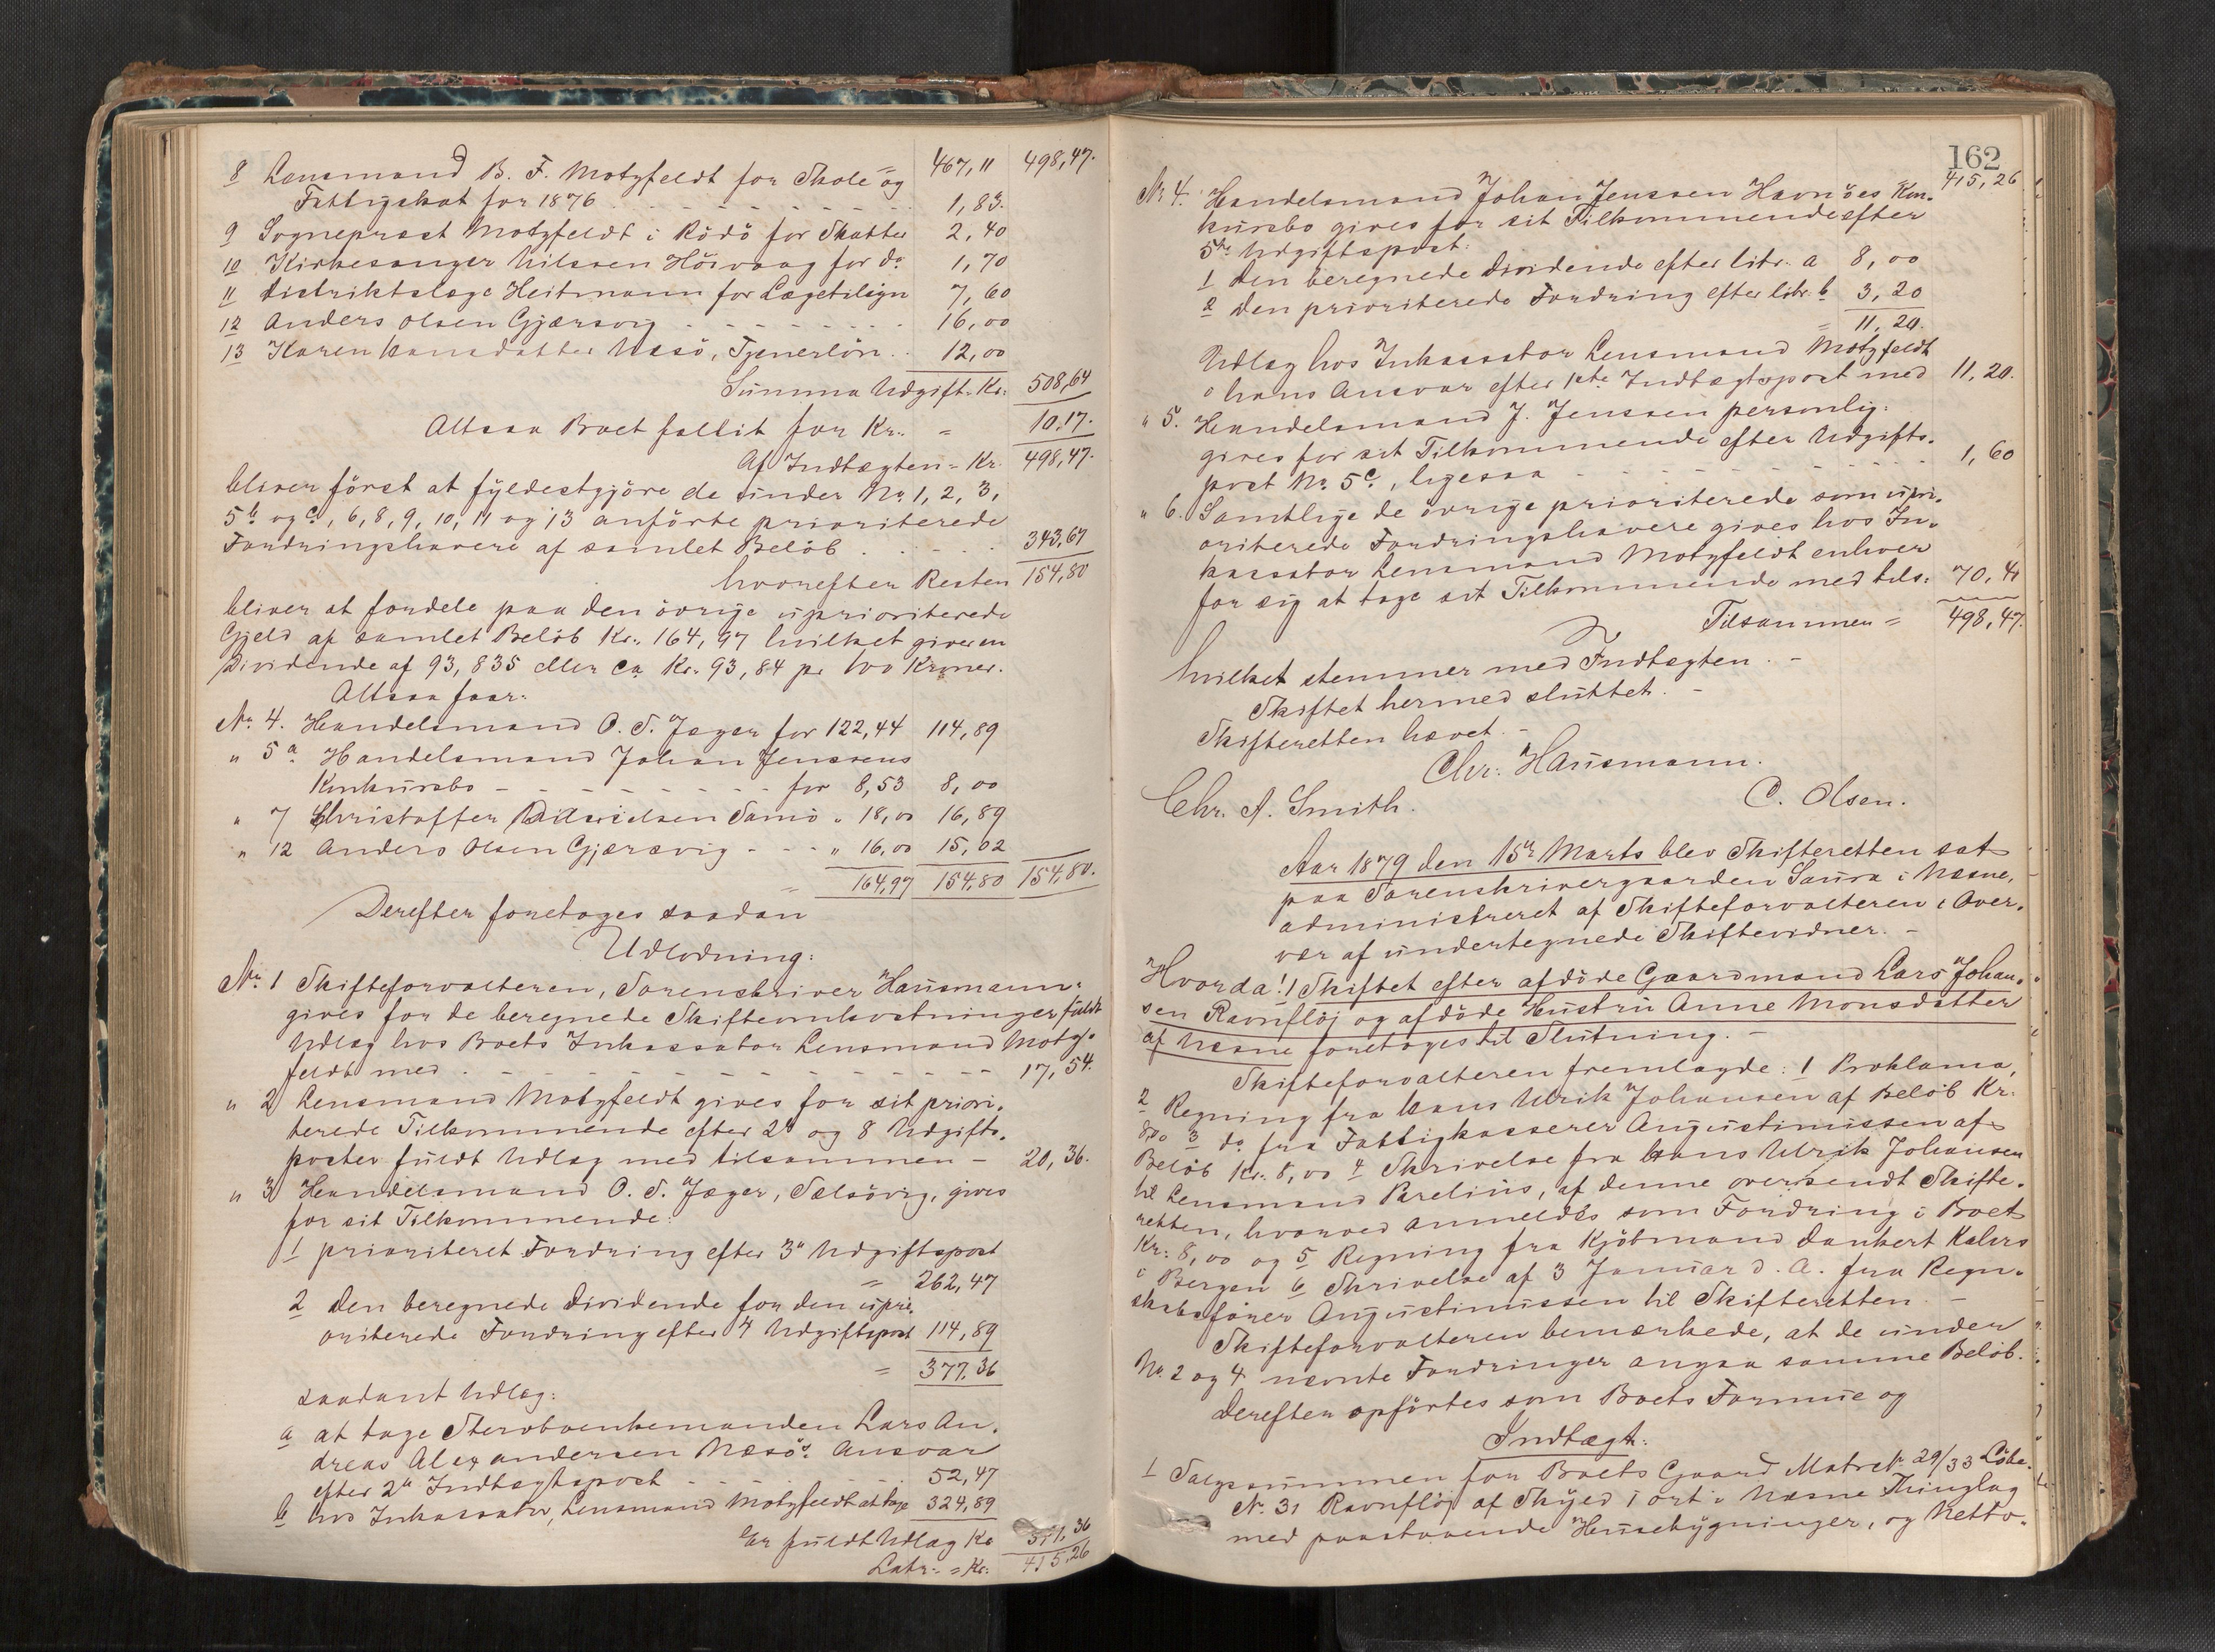 8 Lensmand B. F. Motzfeldt for Skole- og 467,11 498,47.
Fattigskat for 1876 1,83.
9 Sogneprest Motzfeldt i Rödö for Skatter 2,40
10 Kirkesanger Nilssen Hösvaag for do 1,70
11 Distriktslæge Heitmann for Lægetilsyn 7,60
12 Anders Olsen Gjærsvig 16,00
13 Karen Hansdatter Næsö, Tjenerlön 12,00
Summa Udgift Kr. 508,64
Altsaa Boet fallit for Kr. = 10,17.
Af Indtægten = Kr. 498,47.
bliver först at fyldestgjöre de under No. 1, 2, 3,
5b og c, 6, 8, 9, 10, 11 og 13 anförte prioriterede
Fordringshavere af samlet Belöb 343,67
hvorefter Resten 154,80
bliver at fordele paa den övrige uprioriterede
Gjeld af samlet Belöb Kr. 164,97 hvilket giver en
Dividende af 93,835 eller ca Kr. 93,84 pr 100 Kroner.
Altsaa faar:
No. 4. Handelsmand O. S. Jæger for 122,44 114,89
" 5a Handelsmand Johan Jenssens
Konkursbo for 8,53 8,00
" 7 Christoffer Danielsen Samö " 18,00 16,89
" 12 Anders Olsen Gjærsvig " 16,00 15,02
= 164,97 154,80 154,80.
Derefter foretoges saadan
Udlodning:
No. 1 Skifteforvalteren, Sorenskriver Hausmann
gives for de beregnede Skifteomkostninger fuldt
Udlæg hos Boets Inkassator Lensmand Motz-
feldt med 17,54.
" 2 Lensmand Motzfeldt gives for sit priori-
terede Tilkommende efter 2den og 8 Udgifts-
poster fuldt Udlæg med tilsammen 20,36.
" 3 Handelsmand O. S. Jæger, Selsövig, gives
for sit Tilkommende:
1 prioriteret Fordring efter 3die Udgiftspost
= 262,47
2 den beregnede Dividende for den upri-
oriterede Fordring efter 4 Udgiftspost 114,89
= 377,36
saadant Udlæg:
a at tage Stervboenkemanden Lars An-
dreas Alexandersen Næsös Ansvar
efter 2den Indtægtspost 52,47
b hos Inkassator, Lensmand Motzfeldt at tage 324,89
Er fuldt Udlæg Kr 377,36
Latr. = Kr. 415,26
162
415,26
No 4. Handelsmand Johan Jenssen Havnöes Kon-
kursbo gives for sit Tilkommende efter
5te Udgiftspost:
1 den beregnede Dividende efter litr. a 8,00
2 den prioriterede Fordring efter litr. b 3,20
= 11,20.
Udlæg hos Inkassator Lensmand Motzfeldt
i hans Ansvar efter 1ste Indtægtspost med 11,20.
" 5. Handelsmand J. Jenssen personlig:
gives for sit Tilkommende efter Udgifts-
post No. 5c, ligesaa 1,60
" 6. Samtlige de övrige prioriterede som upri-
oriterede Fordringshavere gives hos In-
kassator Lensmand Motzfeldt enhver
for sig at tage sit Tilkommende med tils: 70,41
Tilsammen = 498,47.
hvilket stemmer med Indtægten. -
Skiftet hermed sluttet. -
Skifteretten hævet. -
Chr. Hausmann.
Chr. A. Smith. C. Olsen.
Aar 1879 den 15de Marts blev Skifteretten sat
paa Sorenskrivergaarden Saura i Næsne,
administreret af Skifteforvalteren i Over-
vær af undertegnede Skiftevidner. -
Hvorda: 1 Skiftet efter afdöde Gaardmand Lars Johan-
sen Ravnflöj og afdöde Hustru Anne Monsdatter
af Næsne foretoges til Slutning. -
Skifteforvalteren fremlagde: 1 Proklama,
2 Regning fra Hans Ulrik Johansen af Belöb Kr.
8,00 3 do fra Fattigkasserer Augustinussen af
Belöb Kr. 8,00 4 Skrivelse fra Hans Ulrik Johansen
til Lensmand Parelius, af denne oversendt Skifte-
retten, hvorved anmeldes som Fordring i Boet
Kr. 8,00 og 5 Regning fra Kjöbmand Dankert Kahrs
i Bergen 6 Skrivelse af 3 Januar d. A. fra Regn-
skabsförer Augustinussen til Skifteretten. -
Skifteforvalteren bemærkede, at de under
No. 2 og 4 nævnte Fordringer angaa samme Belöb.
Derefter opförtes som Boets Formue og
Indtægt:
1 Salgssummen for Boets Gaard Matrok 29/33 Löbe-
No. 31 Ravnflöj af Skyld 1 ort i Næsne Thinglag
med paastaaende Husebygninger, og Netto-